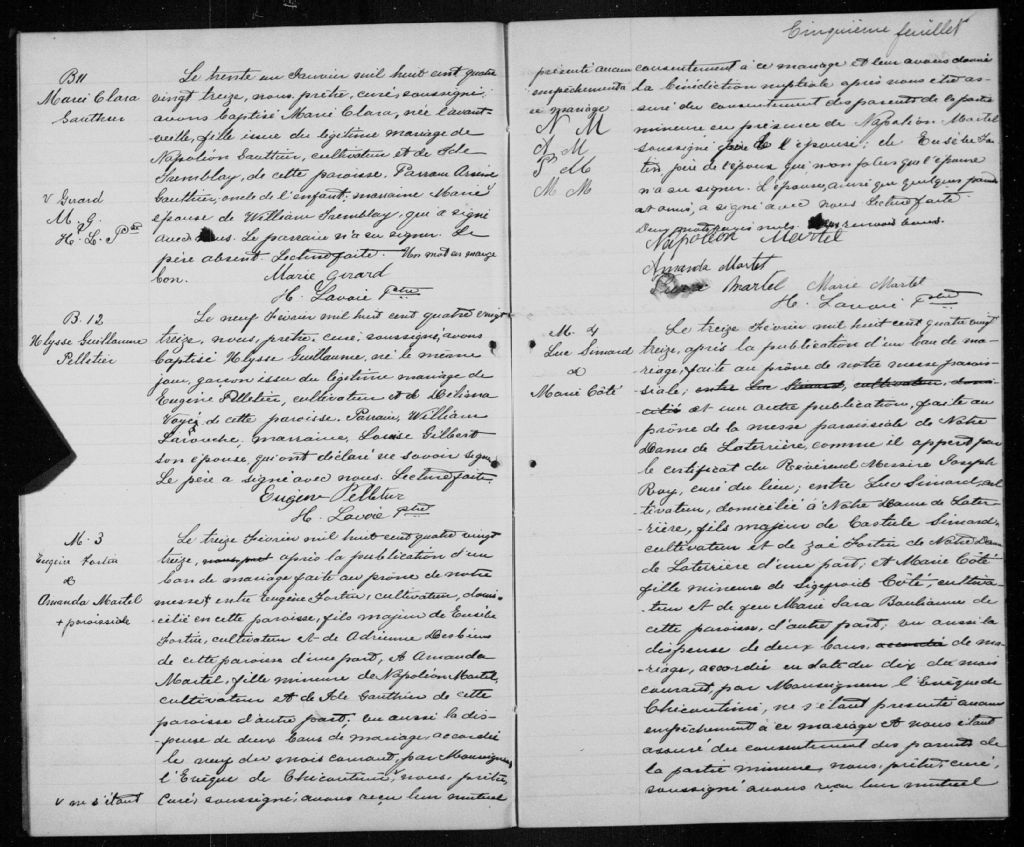 B 11
Marie Clara
Gauthier
Le trente un Janvier mil huit cent quatre
vingt treize, nous, prêtre, curé, soussigné,
avons baptisé Marie Clara, née l'avant-
veille, fille issue du légitime mariage de
Napoléon Gauthier, cultivateur et de Ide
Tremblay, de cette paroisse. Parrain Arsène
Gauthier, oncle de l'enfant; marraine Marie v
épouse de William Tremblay, qui a signé
avec nous. Le parrain n'a su signer. Le
père absent. Lecture faite. Un mot en marge
bon.
v Girard
M. G.
H. L. Ptre
Marie Girard
H. Lavoie Ptre
B. 12
Ulysse Guillaume
Pelletier
Le neuf Février mil huit cent quatre vingt
treize, nous, prêtre, curé, soussigné, avons
baptisé Ulysse Guillaume, né le même
jour, garçon issu du légitime mariage de
Eugène Pelletier, cultivateur et de Délima
de cette paroisse. Parrain, William
Larouche, marraine, Louise Gilbert
son épouse, qui ont déclaré ne savoir signer.
Le père a signé avec nous. Lecture faite
Eugène Pelletier
H. Lavoie Ptre
M. 3
Eugène Fortin
&
Amanda Martel
+ paroissiale
Le treize Février mil huit cent quatre vingt
treize, après la publication d'un
ban de mariage faite au prône de notre
messe+ entre Eugène Fortin, cultivateur, domi-
cilié en cette paroisse, fils majeur de Eusèbe
Fortin, cultivateur et de Adrienne Desbiens
de cette paroisse d'une part, et Amanda
Martel, fille mineure de Napoléon Martel,
cultivateur et de Ide Gauthier de cette
paroisse d'autre part; vu aussi la dis-
-pense de deux bans de mariage, accordée
le neuf du mois courant, par Monseigneur
l'Evêque de Chicoutimi, v nous, prêtre,
curé, soussigné avons reçu leur mutuel
v ne s'étant
Cinquième feuillet
présenté aucun
empêchement à
ce mariage
N M
A M
P M
M M
consentement à ce mariage et leur avons donné
la bénédiction nuptiale après nous être as-
suré du consentement des parents de la partie
mineure en présence de Napoléon Martel
soussigné père de l'épouse; de Eusèbe For-
tin père de l'époux qui, non plus que l'époux
n'a su signer. L'épouse, ainsi que quelques parents
et amis, a signé avec nous. Lecture faite.
Deux mots rayés nuls. renvois bons.
Napoléon Martel
Amanda Martel
Martel Marie Martel
H. Lavoie Ptre
M. 4
Luc Simard
&
Marie Côté
Le treize Février mil huit cent quatre vingt
treize, après la publication d'un ban de ma-
riage, faite au prône de notre messe parois-
siale, entre Luc Simard, cultivateur, domi-
cilié et une autre publication, faite au
prône de la messe paroissiale de Notre
Dame de Laterrière, comme il appert par
le certificat du Révérend Messire Joseph
Roy, curé du lieu; entre Luc Simard, cul-
tivateur, domicilié à Notre Dame de Later-
rière, fils majeur de Simard
cultivateur et de Zoé Fortin de Notre Dame
de Laterrière d'une part; et Marie Côté
fille mineure de Sigefroid Côté, cultiva-
teur et de feu Marie Sara Boulianne de
cette paroisse, d'autre part; vu aussi la
dispense de deux bans, accordée de ma-
riage, accordée en date du dix du mois
courant, par Monseigneur l'Evêque de
Chicoutimi, ne s'étant présenté aucun
empêchement à ce mariage et nous étant
assuré du consentement des parents de
la partie mineure, nous, prêtre, curé,
soussigné avons reçu leur mutuel